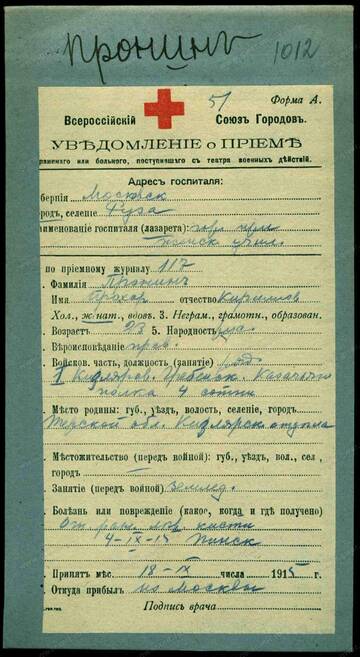 Пронинъ
1012
51 Форма А.
Всероссійскій Союзъ Городовъ.
УВѢДОМЛЕНІЕ о ПРІЕМѢ
раненаго или больного, поступившаго съ театра военныхъ дѣйствій.
Адресъ госпиталя:
бернія Московск
родъ, селеніе Руза
именованіе госпиталя (лазарета): гор. при
учил.
по пріемному журналу 117
Фамилія Пронинъ
Имя Прохор отчество Кирилов
Хол., жнат., вдовъ. 3. Неграм., грамотн., образован.
Возрастъ 23 5. Народность
Вѣроисповѣданіе прав.
Войсков. часть, должность (занятіе) ряд.
1 Кизляров. Гребенск. Казачьяго
полка 4 сотни
Мѣсто родины: губ., уѣздъ, волость, селеніе, городъ
Терской обл. Кизлярск. отдѣла
Мѣстожительство (передъ войной): губ., уѣздъ, вол., сел.,
городъ
Занятіе (передъ войной) землед.
Болѣзнь или поврежденіе (какое, когда и гдѣ получено)
Ог. ран. лѣв. кисти
4-IX-15 Пинск
Принятъ мѣс. 18-IX числа 1915 г.
Откуда прибылъ из Москвы
Подпись врача